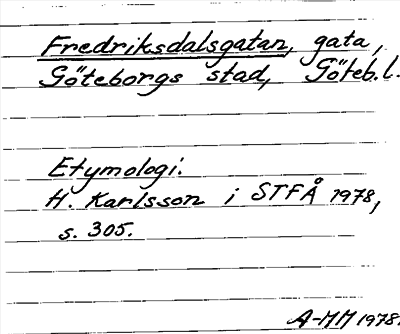 Fredriksdalsgatan, gata,
Göteborgs stad, Göteb.l.
Etymologi.
H. Karlsson i STFÅ 1978,
s. 305.
A-MM 1978.